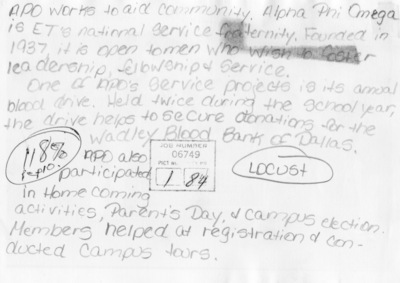 APO works to aid community. Alpha Phi Omega
is ET's national service fraternity. Founded in
1937, it is open to men who wish to foster
leadership, fellowship & service.
One of APO's service projects is its annual
blood drive. Held twice during the school year,
the drive helps to secure donations for the
Wadley Blood Bank of Dallas.
118%
repro.
APO also
participated
in Homecoming
JOB NUMBER
06749
1 84
LOCUST
activities, Parent's Day, & campus election.
Members helped at registration & con-
ducted campus tours.